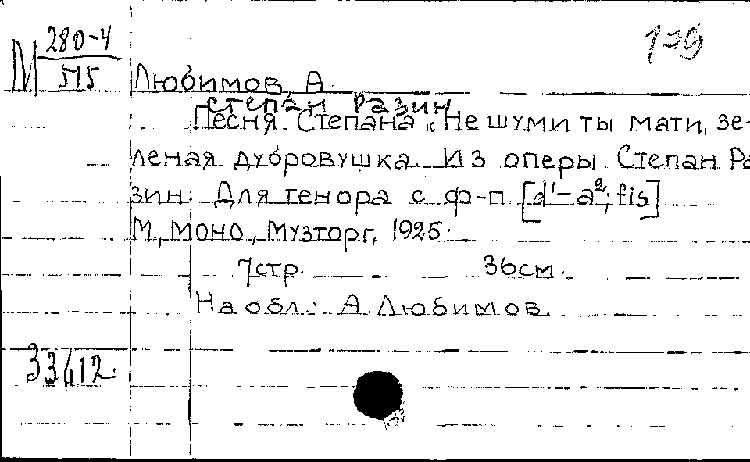 М 280-4
515
Любимов, А.
Степан Разин
Песня Степана „Не шуми ты мати, зе-
леная дубровушка. Из оперы Степан Ра
зин. Для тенора с ф-п [d¹-a²; fis]
М, моно., Музторг, 1925.
7стр. 36см.
На обл.: А Любимов
33412.